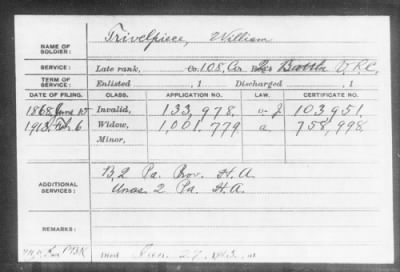 NAME OF SOLDIER: Trivelpiece, William
SERVICE: Late rank, Co. 108, Co. 2 Battn V.R.C.
TERM OF SERVICE: Enlisted , 1 Discharged , 1
DATE OF FILING. CLASS. APPLICATION NO. LAW. CERTIFICATE NO.
1868 June 15 Invalid, 133,978. 103,951.
1913, Feb. 6 Widow, 1,001,779 a. 758,998
Minor,
ADDITIONAL SERVICES: B, 2 Pa. Prov. H.A.
Unas. 2 Pa. H.A.
REMARKS:
Died Jan. 27, 1913, at